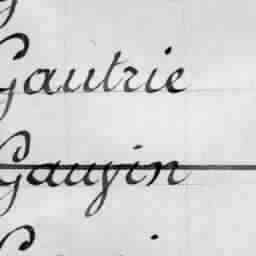 Gautrie
Gauyin